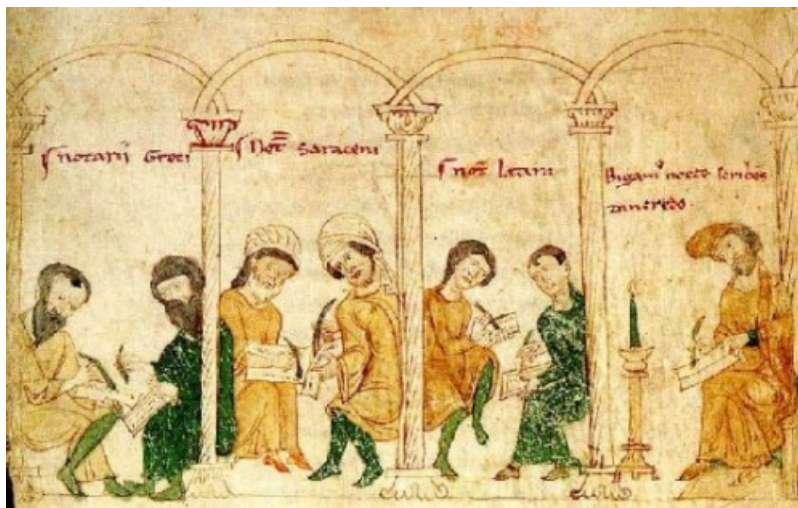 notarii Greci
Not̄ Saraceni
not̄ latini
Bigamꝰ nocte scribēs
tancredo.